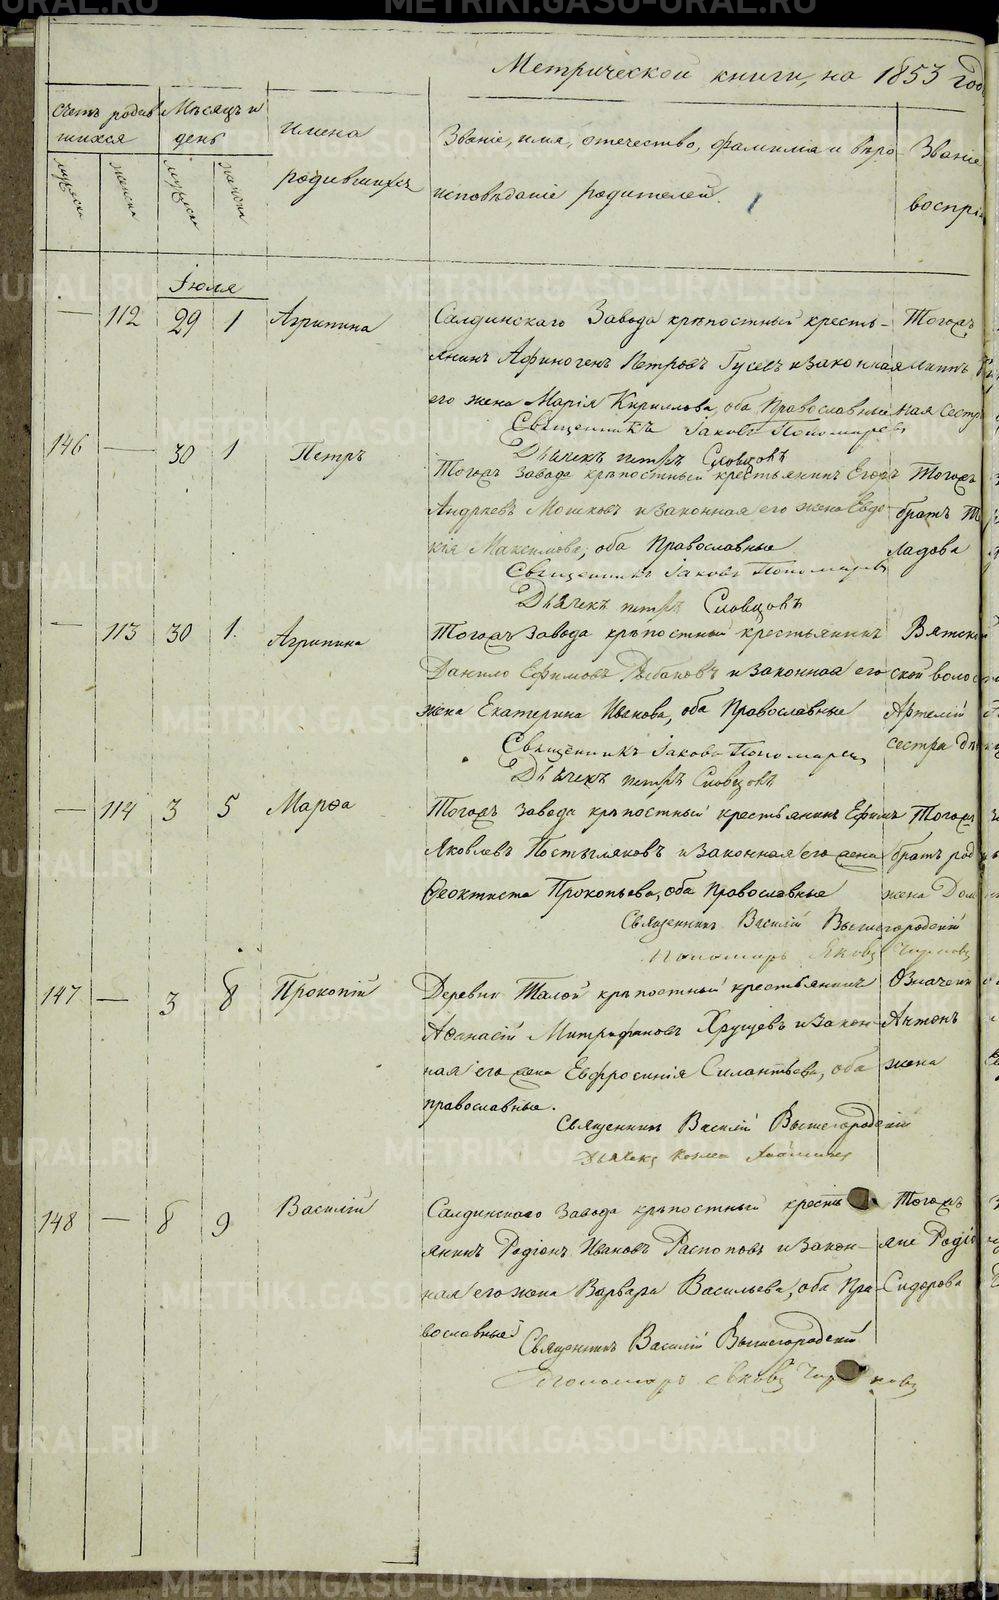 Метрической книги, на 1853 год
Счетъ родив
шихся
Мѣсяцъ и
день
имена
родившихся
Званіе, имя, отечество, фамилія и вѣро-
исповѣданіе родителей.
Званіе
воспрі
мужеска
женска
Іюля
112 29 1 Агрипина
Салдинскаго Завода крѣпостный кресть-
янинъ Афиногенъ Петровъ Гусевъ и законная
его жена Марія Кирилова, оба Православные
Священникъ Іаковъ Пономаревъ
Дьячекъ петръ Словцовъ
Тогожъ
ная сестр
146 30 1 Петръ
Тогожъ завода крѣпостный крестьянинъ Егоръ
Андреевъ Мошковъ и законная его жена Евдо-
кія Максимова, оба Православные
Священникъ Іаковъ Пономаревъ
Дьячекъ петръ Словцовъ
Тогожъ
братъ
ладова
113 30 1. Агрипина
Тогожъ Завода крѣпостный крестьянинъ
Данило Ефимовъ Рыбаковъ и законная его
жена Екатерина Иванова, оба Православные
Священникъ Іаковъ Пономаревъ
Дьячекъ петръ Словцовъ
Вятск
ской волос
Артелій
сестра
114 3 5 Марѳа
Тогожъ завода крѣпостный крестьянинъ Ефимъ
Яковлевъ Постыляковъ и законная его жена
Ѳеоктиста Прокопьева, оба Православные
Священникъ Василій Вышегородскій
Пономарь Яковъ
Тогожъ
братъ род
жена Дом
147 3 8 Прокопій
Деревни Талой крѣпостный крестьянинъ
Аѳанасій Митрофановъ Хрущевъ и закон-
ная его жена Евфросинія Силантьева, оба
православные.
Священникъ Василій Вышегородскій
Дьячекъ Козма
Означен
Антонъ
жена
148 8 9 Василій
Салдинскаго завода крѣпостный кресть
янинъ Родіонъ Ивановъ Распоповъ и закон-
ная его жена Варвара Васильева, оба Пра-
вославные
Священникъ Василій Вышегородскій
Пономарь Яковъ
Тогожъ
яне Родіо
Сидорова
METRIKI.GASO-URAL.RU